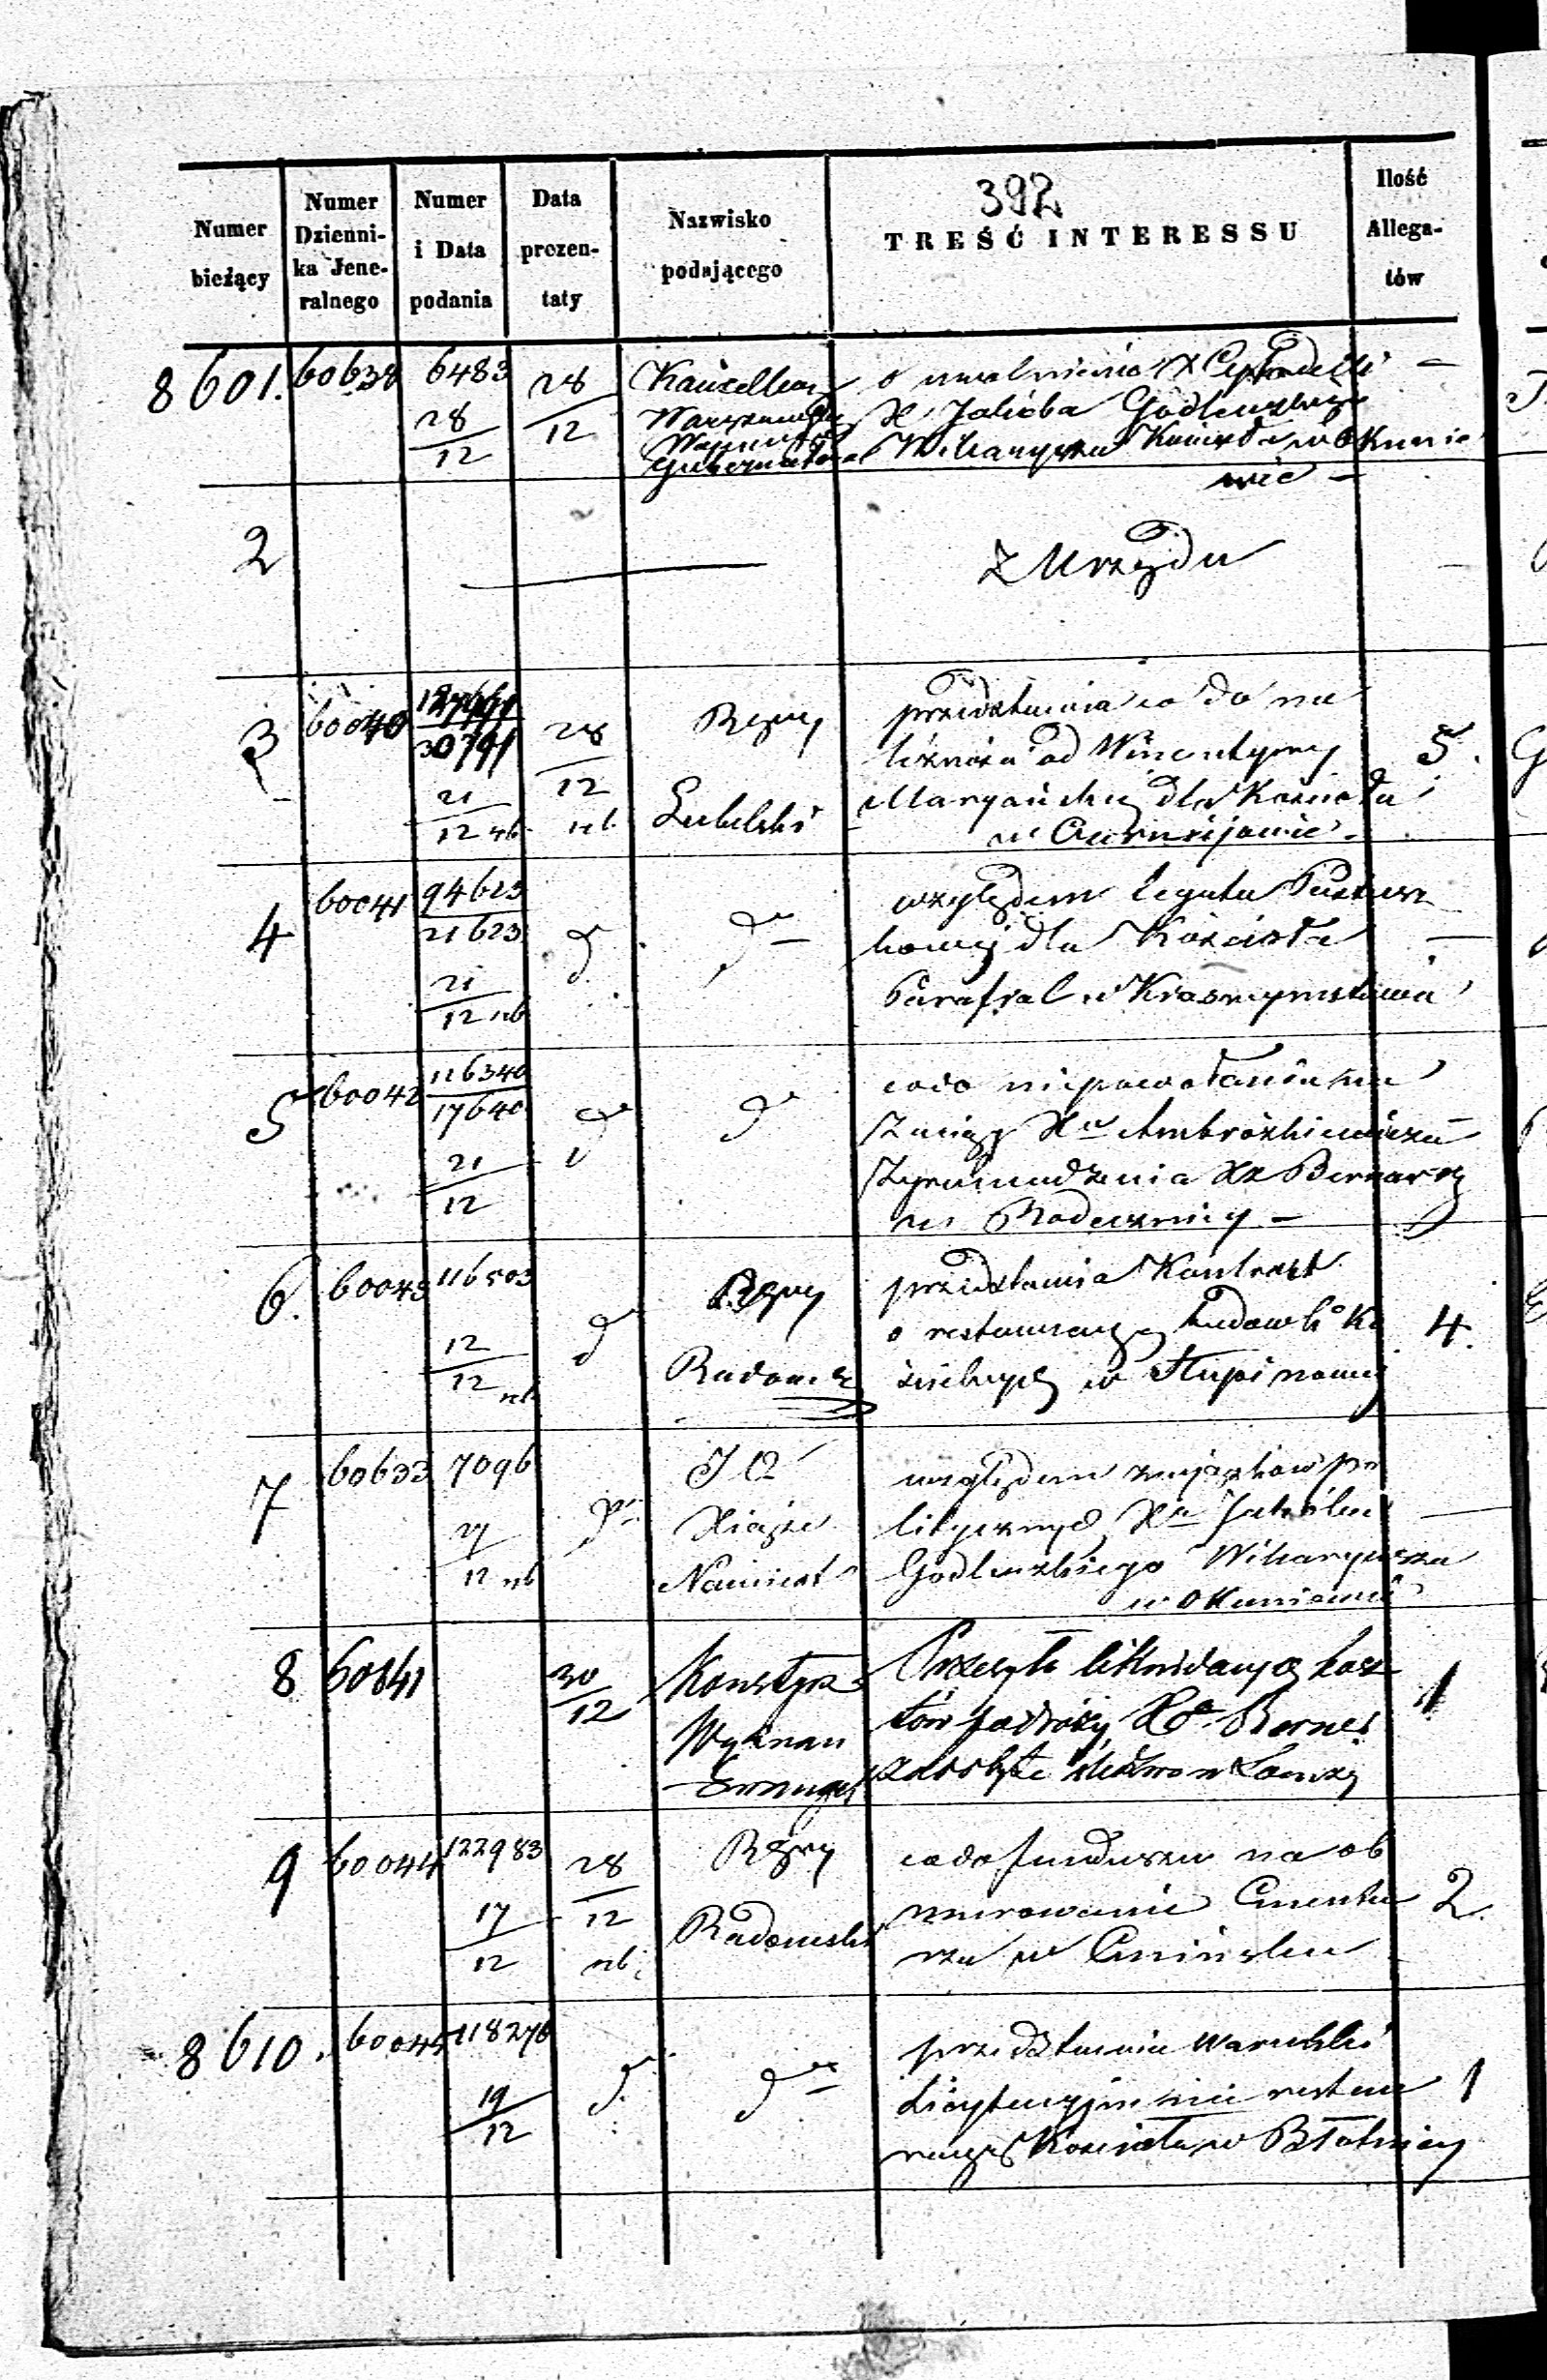 392
Numer bieżący
Numer Dzienni-ka Jene-ralnego
Numer i Data podania
Data prezen-taty
Nazwisko podającego
TREŚĆ INTERESSU
Ilość Allega-tów
8601. 60638 6483 28/12 28/12
Kancellar
Gubernatora
o uwolnienie z Cytadelli —
X. Jakóba Godlewskiego
Wikaryusza Kościoła w Okunie
wie —
2 — z Urzędu —
3 60040 30791 21/12 rb 28/12 rb
Rząd
Lubelski
przedstawia co do na
od Wincentyny 5.
dla Kościoła
w
4 60041 94623/21623 21/12 rb d° d°
względem legatu
dla Kościoła —
Parafial w Krasnymstawie
5 60042 116340/17640 21/12 d° d°
co do
X. Ambrożkiewicza
Zgromadzenia XX Bernar
w Radecznicy —
6. 60043 116503 12/12 rb d°
Rząd
Radoms
przedstawia Kontrakt
o restauracyą budowli Ko 4.
ścielnych w Słupi nowej
7 60633 7096 27/12 rb d°
J O
Xiąże
Namiest
względem związków po
litycznych Xa Jakóba —
Godlewskiego Wikaryusza
w Okuniewie
8 60841 30/12
Konsystorz
Wyznan
Ewangel
Przesyła likwidacyą kosz
tów podróży Xa Berner 1
za odbyte śledztwo w Łomży
9 60044 122983 17/12 28/12 rb
Rząd
Radomski
co do funduszu na ob
murowanie Cmenta 2.
rza w Cmińsku
8610. 60045 118276 19/12 d° d°
przedstawia warunki
Licytacyjne na restau 1
racyą Kościoła w Błotnicy